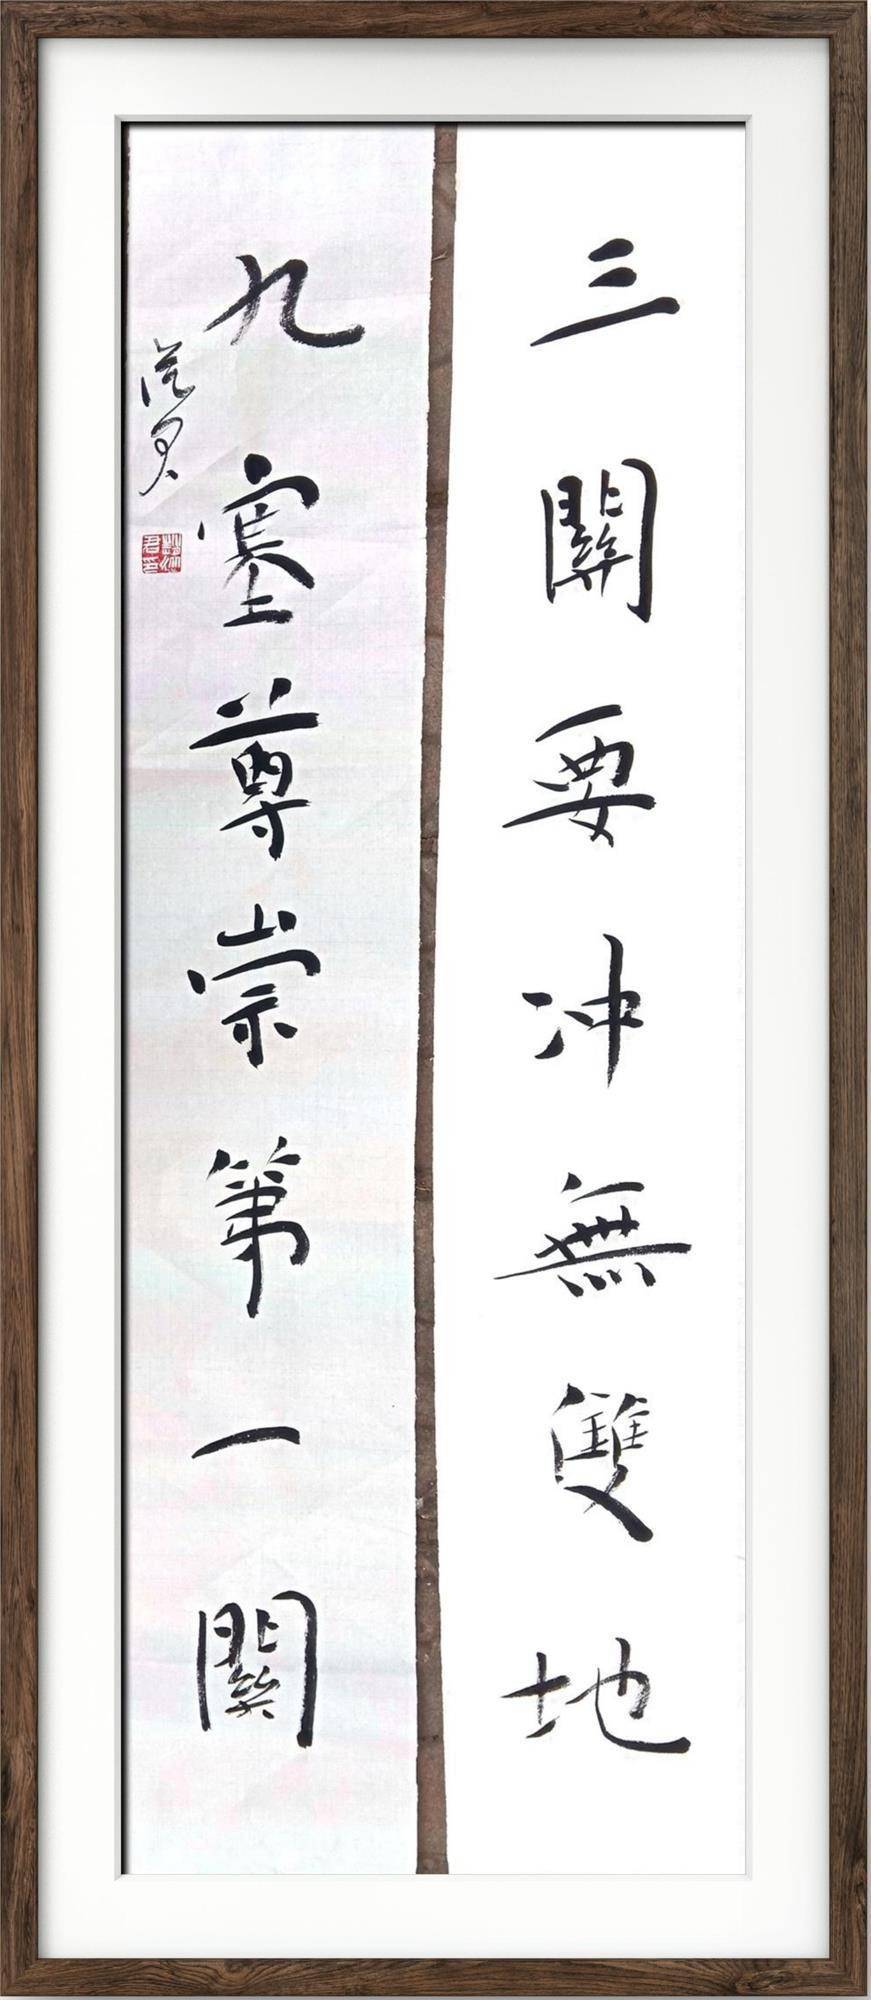 三關要冲無雙地
九塞尊崇第一關